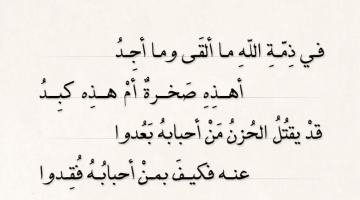 في ذِمّـةِ اللّهِ ما ألقَى وما أجِـدُ
أهـذِهِ صَخـرةٌ أمْ هـذِه كبِـدُ
قدْ يقتُلُ الحُزنُ مَنْ أحبابهُ بَعُدوا
عنـه فكيـفَ بمـنْ أحبابُـهُ فُقِـدوا